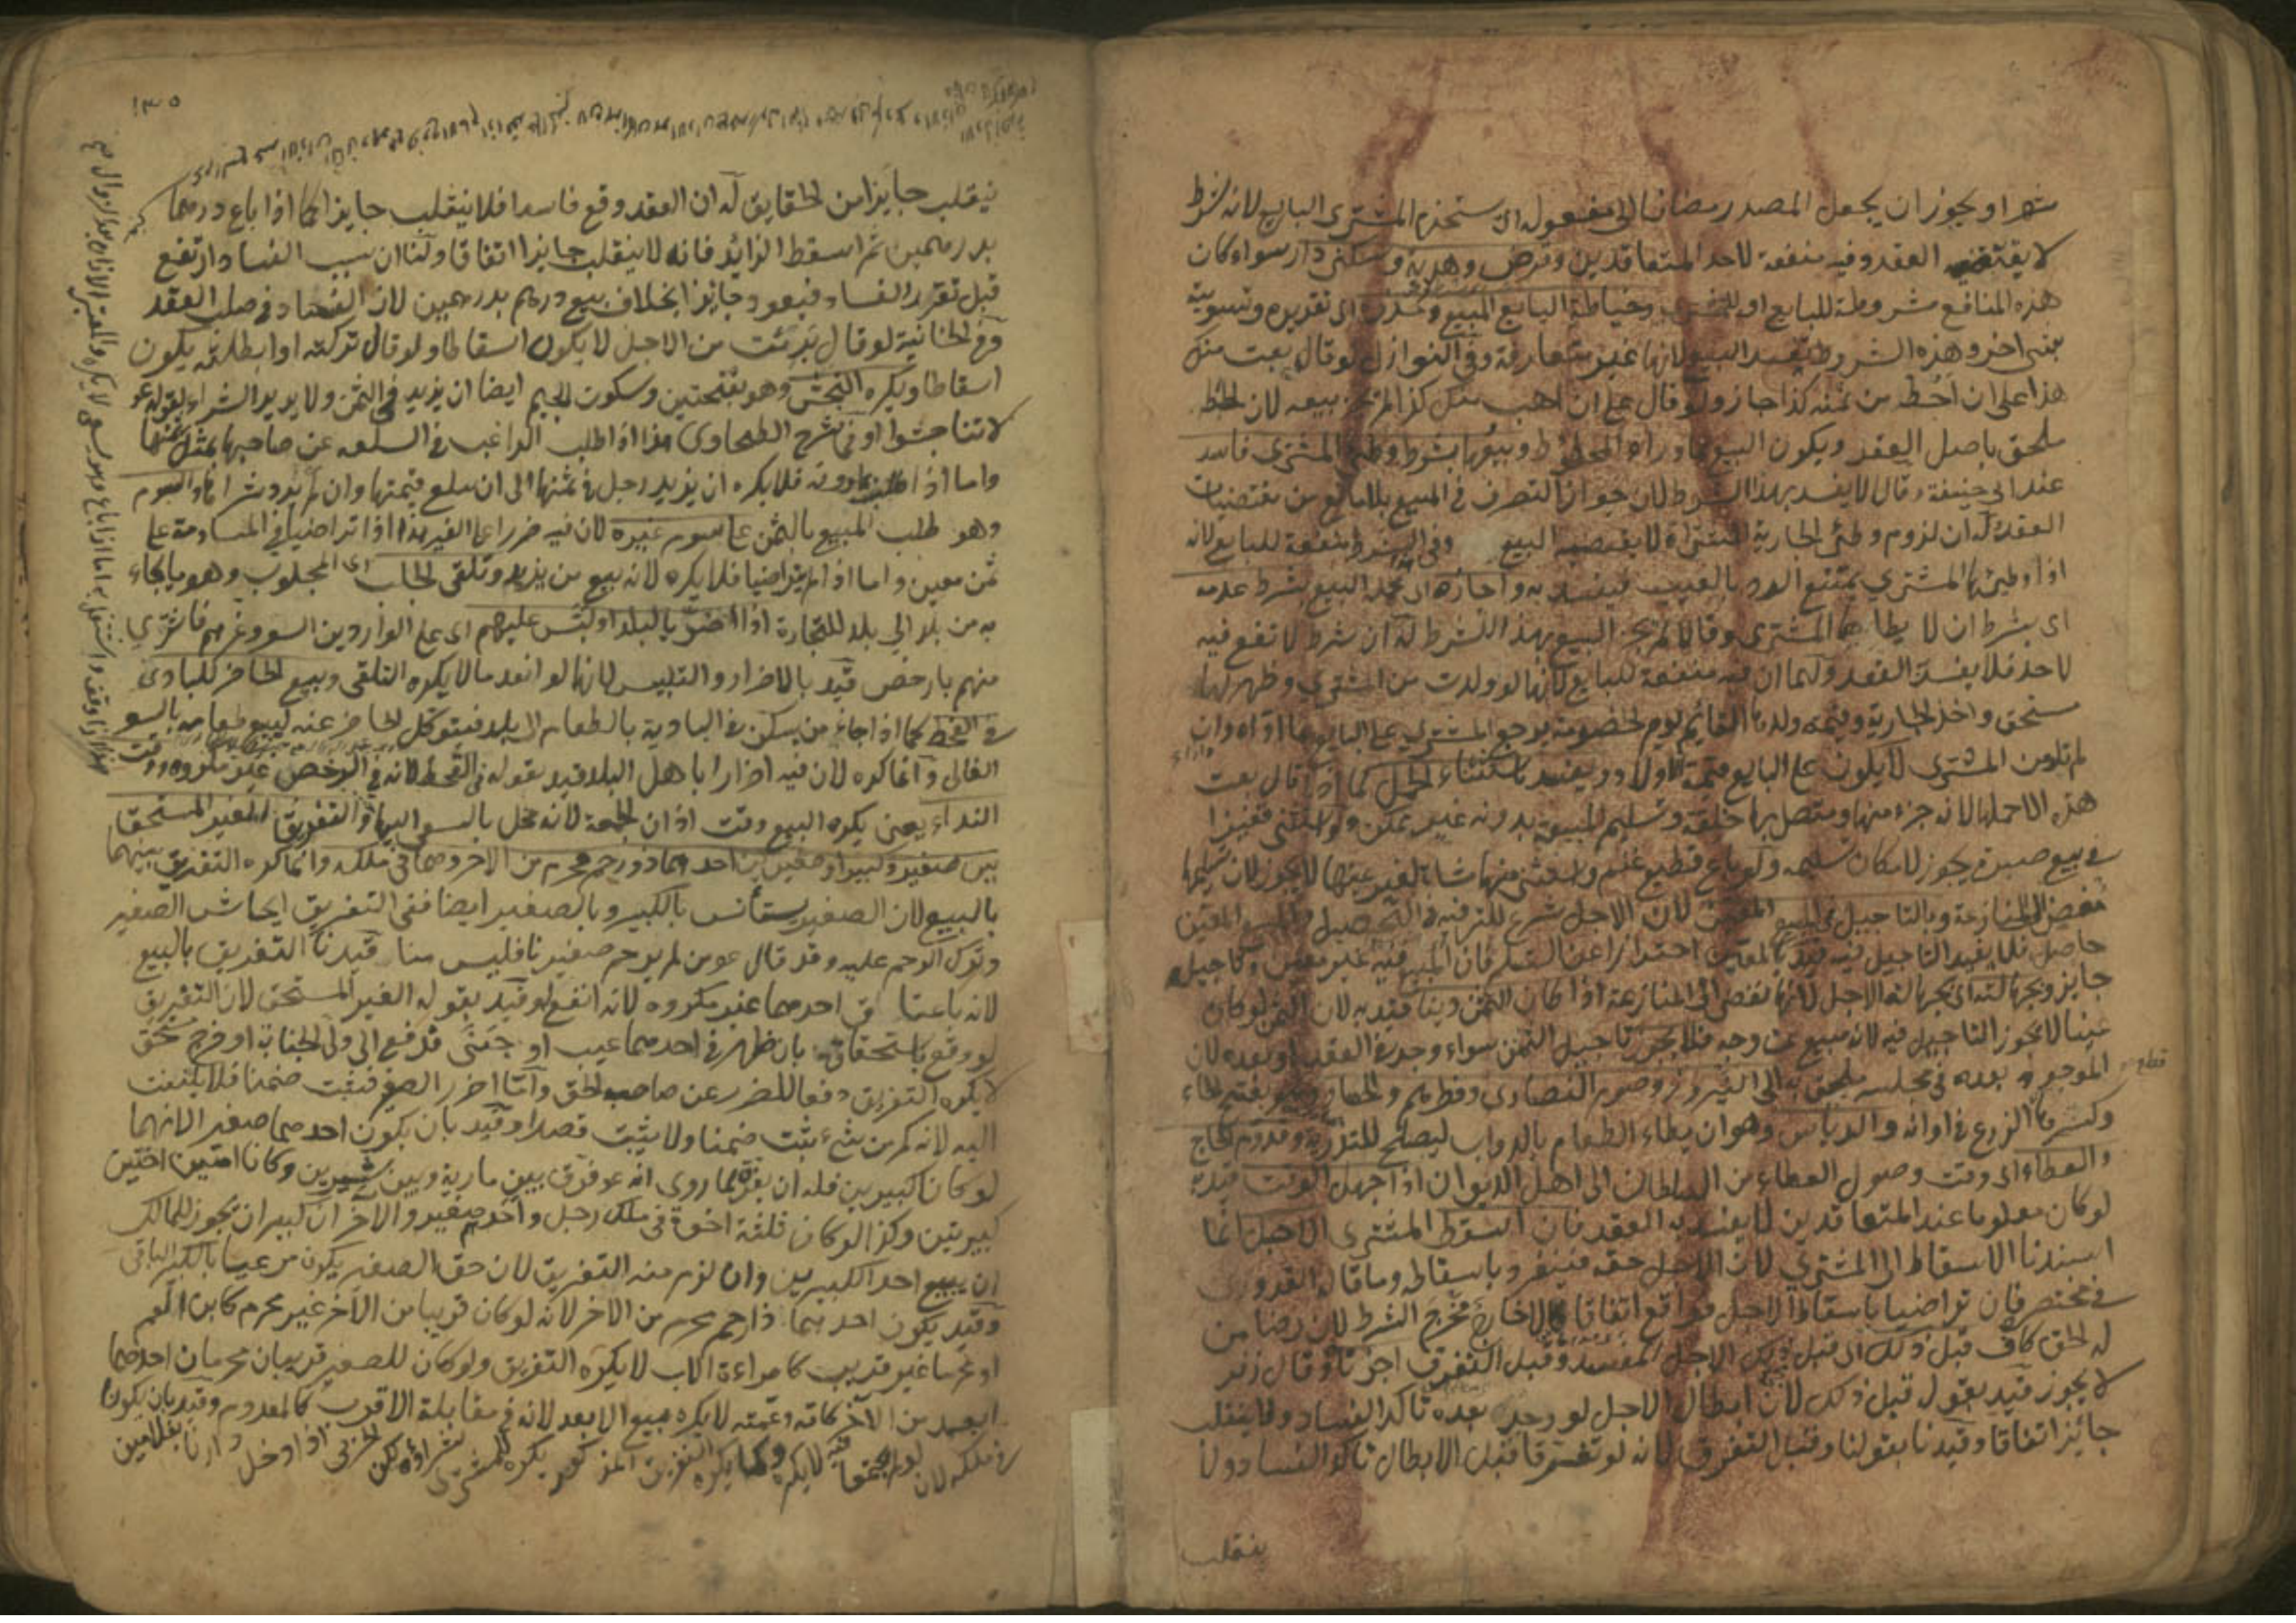 شهرا ويجوز ان يجعل المصدر مضافا الى مفعوله اى يستخدم المشترى البايع لانه شرط
لا يقتضيه العقد وفيه منفعة لاحد المتعاقدين وقرض وهدية وسكنى دار سواء كان
هذه المنافع مشروطة للبايع او للمشترى وخياطة البايع المبيع
بشئ اخر وهذه الشروط تفسد البيع لانها غير متعارفة وفى النوازل لو قال بعت منك
هذا على ان احط من ثمنه كذا جاز ولو قال على ان اهب منك كذا لم يجز بيعه لان الحط
ملحق باصل العقد ويكون البيع بما وراء المحطوط وبيعها بشرط وطئ المشترى فاسد
عند ابى حنيفة وقالا لا يفسد بهذا الشرط لان جواز التصرف فى المبيع بلا مانع من مقتضيات
العقد له ان لزوم وطئ الجارية المشتراة لا يقتضيه البيع وفى الشرط منفعة للبايع لانه
اذا وطئها المشترى يمتنع الرد بالعيب فيفسد به واجازه اى محمد البيع بشرط عدمه
اى بشرط ان لا يطاءها المشترى وقالا لم يجز البيع بهذا الشرط له ان شرط لا نفع فيه
لاحد فلا يفسد العقد ولهما ان فيه منفعة للبايع لانها لو ولدت من المشترى وظهر لها
مستحق واخذ الجارية وقيمة ولدها القائم يوم الخصومة يرجع المشترى على البايع بما اداه وان
لم تلد من المشترى لا يكون على البايع قيمة الاولاد ويفسد باستثناء الحمل كما اذا قال بعت
هذه الا حملها لانه جزء منها ومتصل بها خلقة وتسليم المبيع بدونه غير ممكن ولو استثنى قفيزا
فى بيع صبرة يجوز لامكان تسليمه ولو باع قطيع غنم واستثنى منها شاة لغير عينها لا يجوز لان تسليمها
مفض للمنازعة وبالتاجيل فى المبيع المعين لان الاجل شرع للترفيه فى التحصيل والمبيع المعين
حاصل فلا يفيد التاجيل فيه قيد بالمعين احترازا عن السلم فان المبيع فيه غير معين وتاجيله
جايز وبجهالته اى بجهالة الاجل لانها تفضى الى المنازعة اذا كان الثمن دينا قيد به لان الثمن لو كان
عينا لا يجوز التاجيل فيه لانه مبيع من وجه فلا يجوز تاجيل الثمن سواء وجد فى العقد او بعده لان
الموجود بعده فى مجلسه ملحق به الى النيروز وصوم النصارى وفطرهم والحصاد وهو بفتح الحاء
وكسرها الزرع فى اوانه والدياس وهو ان يطاء الطعام بالدواب ليصلح للتذرية وقدوم الحاج
والعطاء اى وقت وصول العطاء من السلطان الى اهل الديوان اذا جهل الوقت قيد به
لو كان معلوما عند المتعاقدين لا يفسد به العقد فان اسقط المشترى الاجل انما
اسندنا الاسقاط الى المشترى لان الاجل حقه فينفرد باسقاطه وما قاله القدورى
فى مختصره فان تراضيا باسقاط الاجل فواقع اتفاقا لا خارج مخرج الشرط لان رضا من
له الحق كاف قبل ذلك اى قبل ذلك الاجل المفسد وقبل التفرق اجزناه وقال زفر
لا يجوز قيد بقوله قبل ذلك لان ابطال الاجل لو وجد بعده تاكد الفساد ولا ينقلب
جائزا اتفاقا وقيدنا بقولنا وقبل التفرق لانه لو تفرقا قبل الابطال تاكد الفساد ولا
ينقلب
١٣٥
ينقلب جايزا من الحقايق له ان العقد وقع فاسدا فلا ينقلب جايزا كما اذا باع درهما
بدرهمين ثم اسقط الزائد فانه لا ينقلب جايزا اتفاقا ولنا ان سبب الفساد ارتفع
قبل تقرر الفساد فيعود جايزا بخلاف بيع درهم بدرهمين لان الفساد فى صلب العقد
وفى الخانية لو قال برئت من الاجل لا يكون اسقاطا ولو قال تركته او ابطلته يكون
اسقاطا ويكره النجش وهو بفتحتين وسكون الجيم ايضا ان يزيد فى الثمن ولا يريد الشراء لقوله عم
لا تناجشوا وفى شرح الطحاوى هذا اذا طلب الراغب فى السلعة عن صاحبها بمثل ثمنها
واما اذا طلب بما دونه فلا يكره ان يزيد رجل فى ثمنها الى ان يبلغ قيمتها وان لم يرد شراءها والسوم
وهو طلب المبيع بالثمن على سوم غيره لان فيه ضررا على الغير هذا اذا تراضيا فى المساومة على
ثمن معين واما اذا لم يتراضيا فلا يكره لانه بيع من يزيد وتلقى الجلب اى المجلوب وهو ما يجاء
به من بلد الى بلد للتجارة اذا اضر بالبلد او لبس عليهم اى على الواردين السعر وغرهم فاشترى
منهم بارخص قيد بالاضرار والتلبيس لانهما لو انعدما لا يكره التلقى وبيع الحاضر للبادى
فى القحط كما اذا جاء من يسكن فى البادية بالطعام الى بلد فيتوكل الحاضر عنه ليبيع طعامه بالسعر
الغالى وانما كره لان فيه اضرارا باهل البلد قيد بقوله فى القحط لانه فى الرخص غير مكروه ووقت
النداء يعنى يكره البيع وقت اذان الجمعة لانه مخل بالسعى اليها والتفريق لغير المستحق
بين صغير وكبير او صغيرين احدهما ذو رحم محرم من الاخر وهما فى ملكه وانما كره التفريق بينهما
بالبيع لان الصغير يستأنس بالكبير وبالصغير ايضا ففى التفريق ايحاش الصغير
وترك الرحم عليه وقد قال عم من لم يرحم صغيرنا فليس منا قيدنا التفريق بالبيع
لانه اعتاق احدهما غير مكروه لانه انفع له وقيد بقوله الغير المستحق لان التفريق
لو وقع باستحقاقه بان ظهر فى احدهما عيب او جنى فدفع الى ولى الجناية او خرج مستحق
لا يكره التفريق دفعا للضرر عن صاحب الحق واما ضرر الصغير فيثبت ضمنا فلا يلتفت
اليه لانه كم من شئ يثبت ضمنا ولا يثبت قصدا وقيد بان يكون احدهما صغيرا لانهما
لو كانا كبيرين فله ان يفرق لما روى انه عم فرق بين مارية وبين شيرين وكانا امتين اختين
كبيرتين وكذا لو كان ثلثة اخوة فى ملك رجل واحدهم صغير والاخران كبيران يجوز للمالك
ان يبيع احد الكبيرين وان لزم منه التفريق لان حق الصغير يكون مرعيا بالكبير الباقى
وقيد بكون احدهما ذا رحم محرم من الاخر لانه لو كان قريبا من الاخر غير محرم كابن العم
او محرما غير قريب كامراءة الاب لا يكره التفريق ولو كان للصغير قريبان محرمان احدهما
ابعد من الاخر كامه وعمته لا يكره بيع الابعد لانه فى مقابلة الاقرب كالمعدوم وقيد بان يكونا
فى ملكه لان لو لم يجتمعا فيه لا يكره وكما يكره التفريق المذكور يكره للمشترى شراؤه لكن الحربى اذا دخل دارنا بغلامين